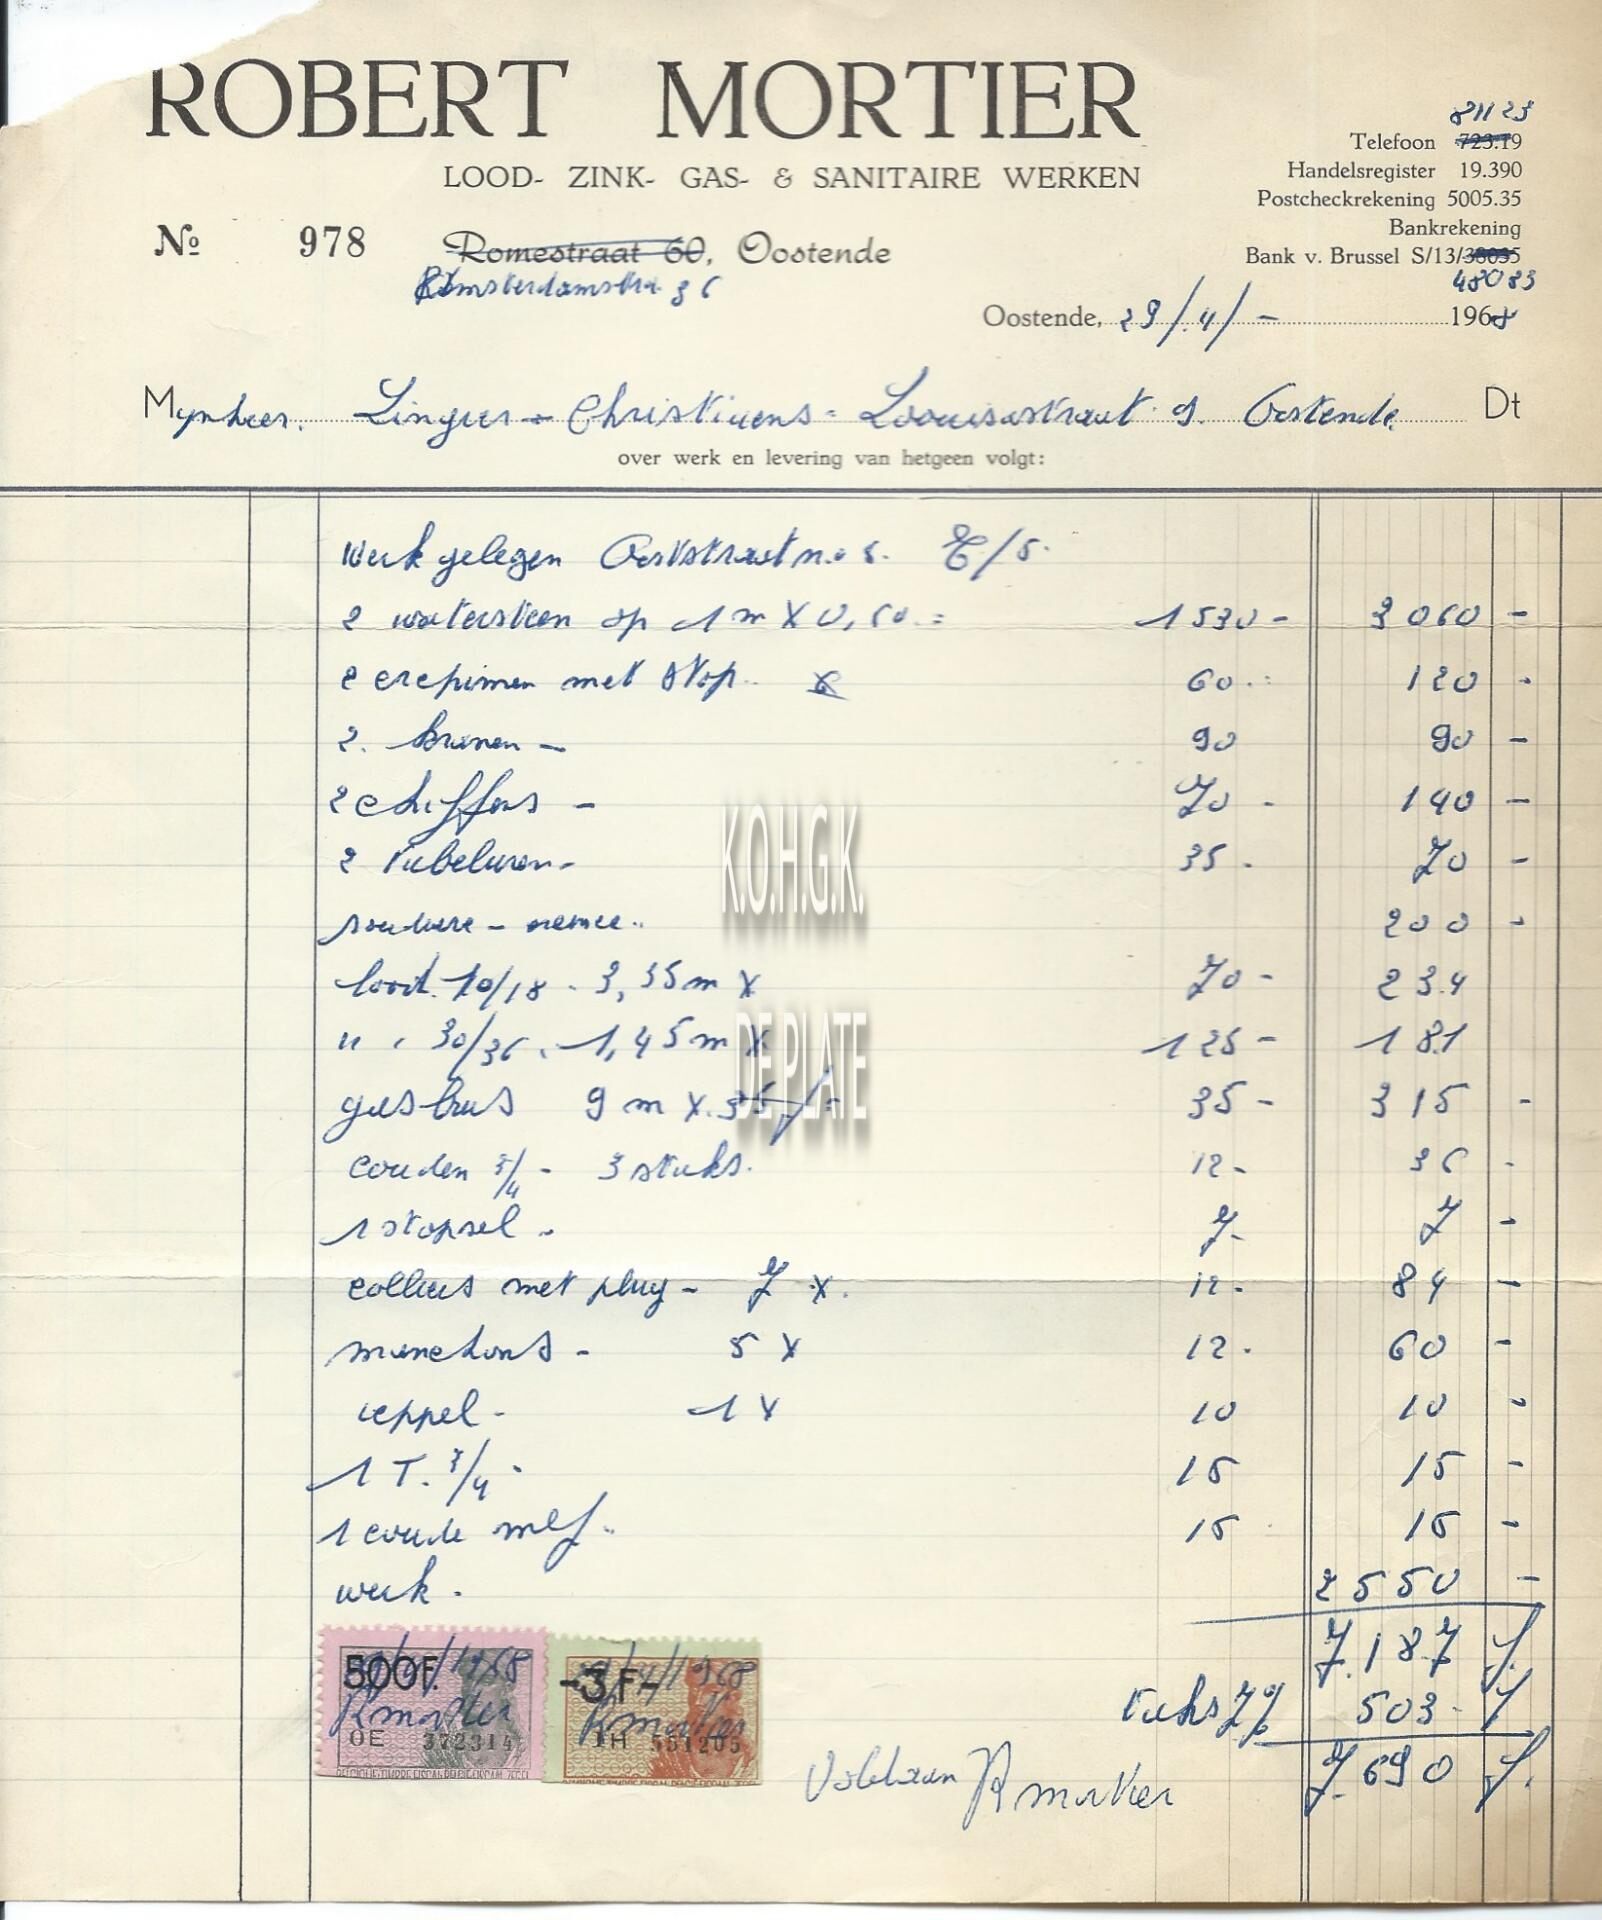 ROBERT MORTIER
LOOD- ZINK- GAS- & SANITAIRE WERKEN
81123
Telefoon 723.19
Handelsregister 19.390
Postcheckrekening 5005.35
Bankrekening
Bank v. Brussel S/13/38035
48083
No 978
Romestraat 60, Oostende
Amsterdamstra. 36
Oostende, 29/4/- 1968
Mynheer. Christiaens = Louisastraat 9. Oostende Dt
over werk en levering van hetgeen volgt:
werk gelegen n.o 5.
2 watersteen op 1 m X 0,60. = 1530- 3060 -
2 crepienen met stop. 60. 120 -
2. kranen - 90 90 -
2 chiffons - 70 - 140 -
2 tubeluren - 35. 70 -
soudure - 200 -
lood. 10/18 - 3,35 m x 70 - 234
" . 30/36 . 1,45 m x 125 - 181
gasbuis 9 m x. 35 f = 35 - 315 -
couden 3/4 - 3 stuks. 12 - 36 -
1 stopsel - 7 - 7 -
colliers met plug - 7 x. 12 - 84 -
manchons - 5 x 12. 60 -
neppel - 1 x 10 10 -
1 T. 3/4 - 15 15 -
1 coude m&f. 15 15 -
werk. 2550 -
7.187 f.
taks 7% 503 - f
7.690 f.
Voldaan R mortier
500F.
29/4/1968
R mortier
OE 372314
-3 F-
29/4/1968
R mortier
551205
K.O.H.G.K.
DE PLATE